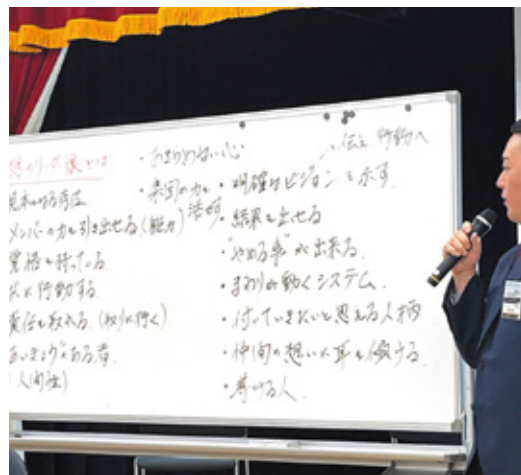 想のリーダー像とは
見本となる存在
メンバーの力を引き出せる(能力)
覚悟を持っている
共に行動する
責任を取れる(謝りに行く)
あいきょうがある者
人間性)
・あきらめない心
・集団の力を活かす
伝え 行動へ
・明確なビジョンを示す
・結果を出せる
・"やめる事"が出来る
・まわりが動くシステム
・付いていきたいと思える人柄
・仲間の想いに耳を傾ける
・導ける人